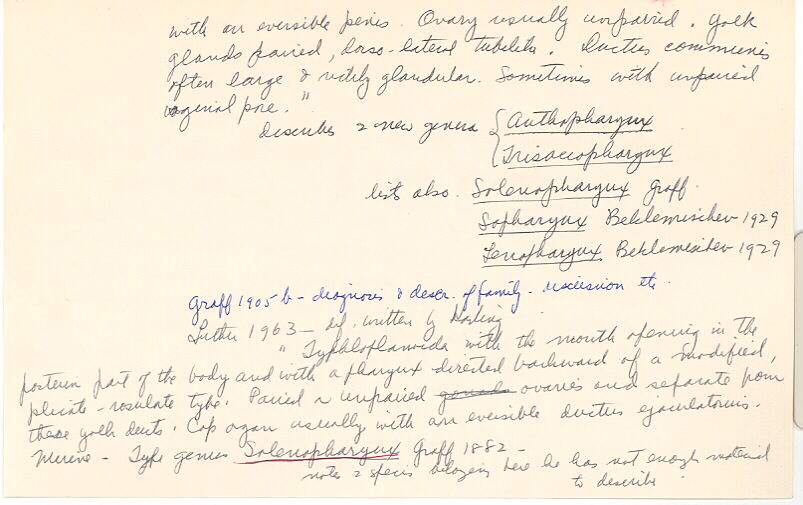 with an eversible penis. Ovary usually unpaired. Yolk
glands paired, dorso-lateral tubelike. Ductus communis
often large & richly glandular. Sometimes with unpaired
vaginal pore."
Describes 2 new genera { Anthopharynx
Trisaccopharynx
lists also. Solenopharynx Graff.
Sopharynx Beklemischev 1929
Lenopharynx Beklemischev 1929
Graff 1905 b - diagnosis & descr. of family - discussion etc.
Luther 1963 - def. written by Karling
" Typhloplanoida with the mouth opening in the
posterior part of the body and with a pharynx directed backward of a modified,
plicate-rosulate type. Paired or unpaired gonads ovaries and separate from
these yolk ducts. Cop organ usually with an eversible ductus ejaculatorius.
Marine - Type genus Solenopharynx Graff 1882 -
notes 2 species belonging here he has not enough material
to describe